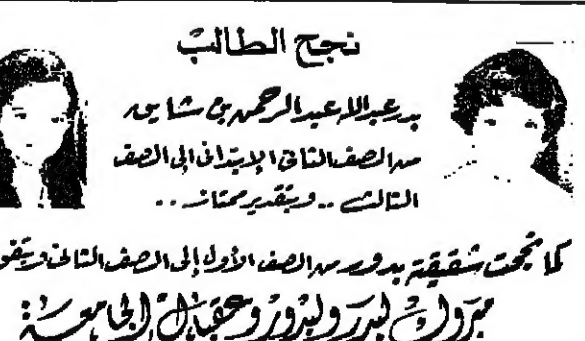 نجح الطالب
بدر عبدالله عبدالرحمن بن شايق
من الصف الثاني الإبتدائي إلى الصف
الثالث .. وبتقدير ممتاز ..
كما نجحت شقيقته بدور من الصف الأول إلى الصف الثاني وبتفو
مبروك لبدر ولبدور وعقبال الجامعة